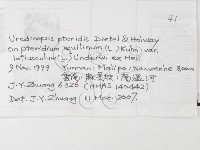 41
Uredinopsis pteridis Dietel & Holway
on Pteridium aquilinum (L.) Kuhn var.
latiusculum (L.) Underw. ex Hell
9 Nov. 1999 Yunnan: Malipo: Nanwenhe 800m
J.-Y. Zhuang 6326 (HMAS 140442)
Det. J.-Y. Zhuang 11 Mar. 2007